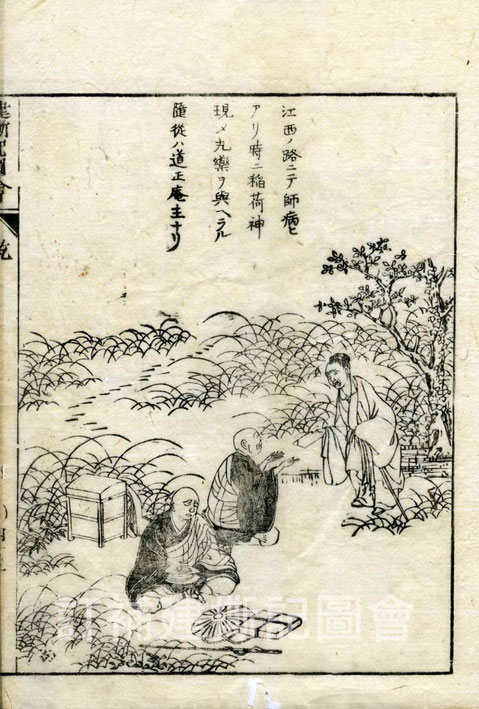 江西ノ路ニテ師病ヒ
アリ時ニ稲荷神
現メ丸藥ヲ與ヘラル
隨從ハ道正庵主ナリ
建撕記圖會
乾
訂補建撕記圖會